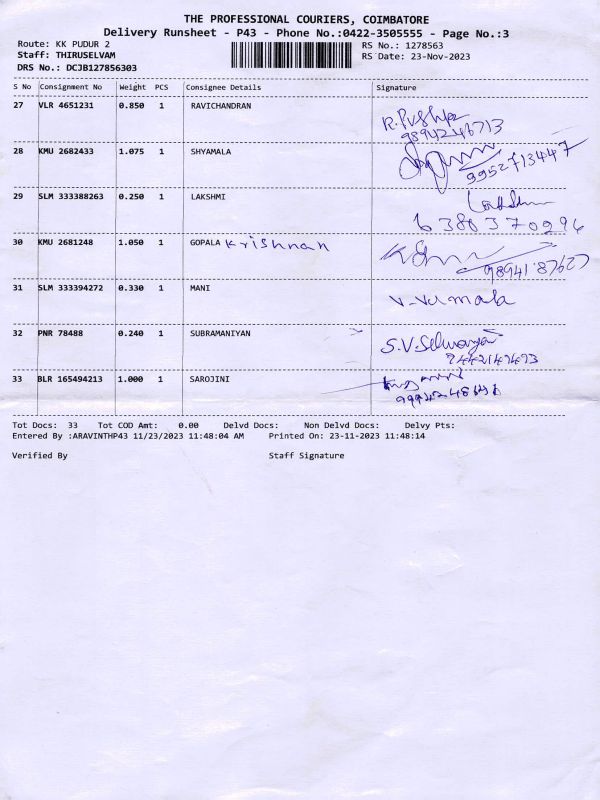 THE PROFESSIONAL COURIERS, COIMBATORE
Delivery Runsheet - P43 - Phone No.:0422-3505555 - Page No.:3
Route: KK PUDUR 2 RS No.: 1278563
Staff: THIRUSELVAM RS Date: 23-Nov-2023
DRS No.: DCJB127856303
S No Consignment No Weight PCS Consignee Details Signature
27 VLR 4651231 0.850 1 RAVICHANDRAN
R.Pushpa
9894246713
28 KMU 2682433 1.075 1 SHYAMALA
9952713447
29 SLM 333388263 0.250 1 LAKSHMI
6380370296
30 KMU 2681248 1.050 1 GOPALA Krishnan
31 SLM 333394272 0.330 1 MANI
V-Vimala
32 PNR 78488 0.240 1 SUBRAMANIYAN
33 BLR 165494213 1.000 1 SAROJINI
Tot Docs: 33 Tot COD Amt: 0.00 Delvd Docs: Non Delvd Docs: Delvy Pts:
Entered By :ARAVINTHP43 11/23/2023 11:48:04 AM Printed On: 23-11-2023 11:48:14
Verified By Staff Signature